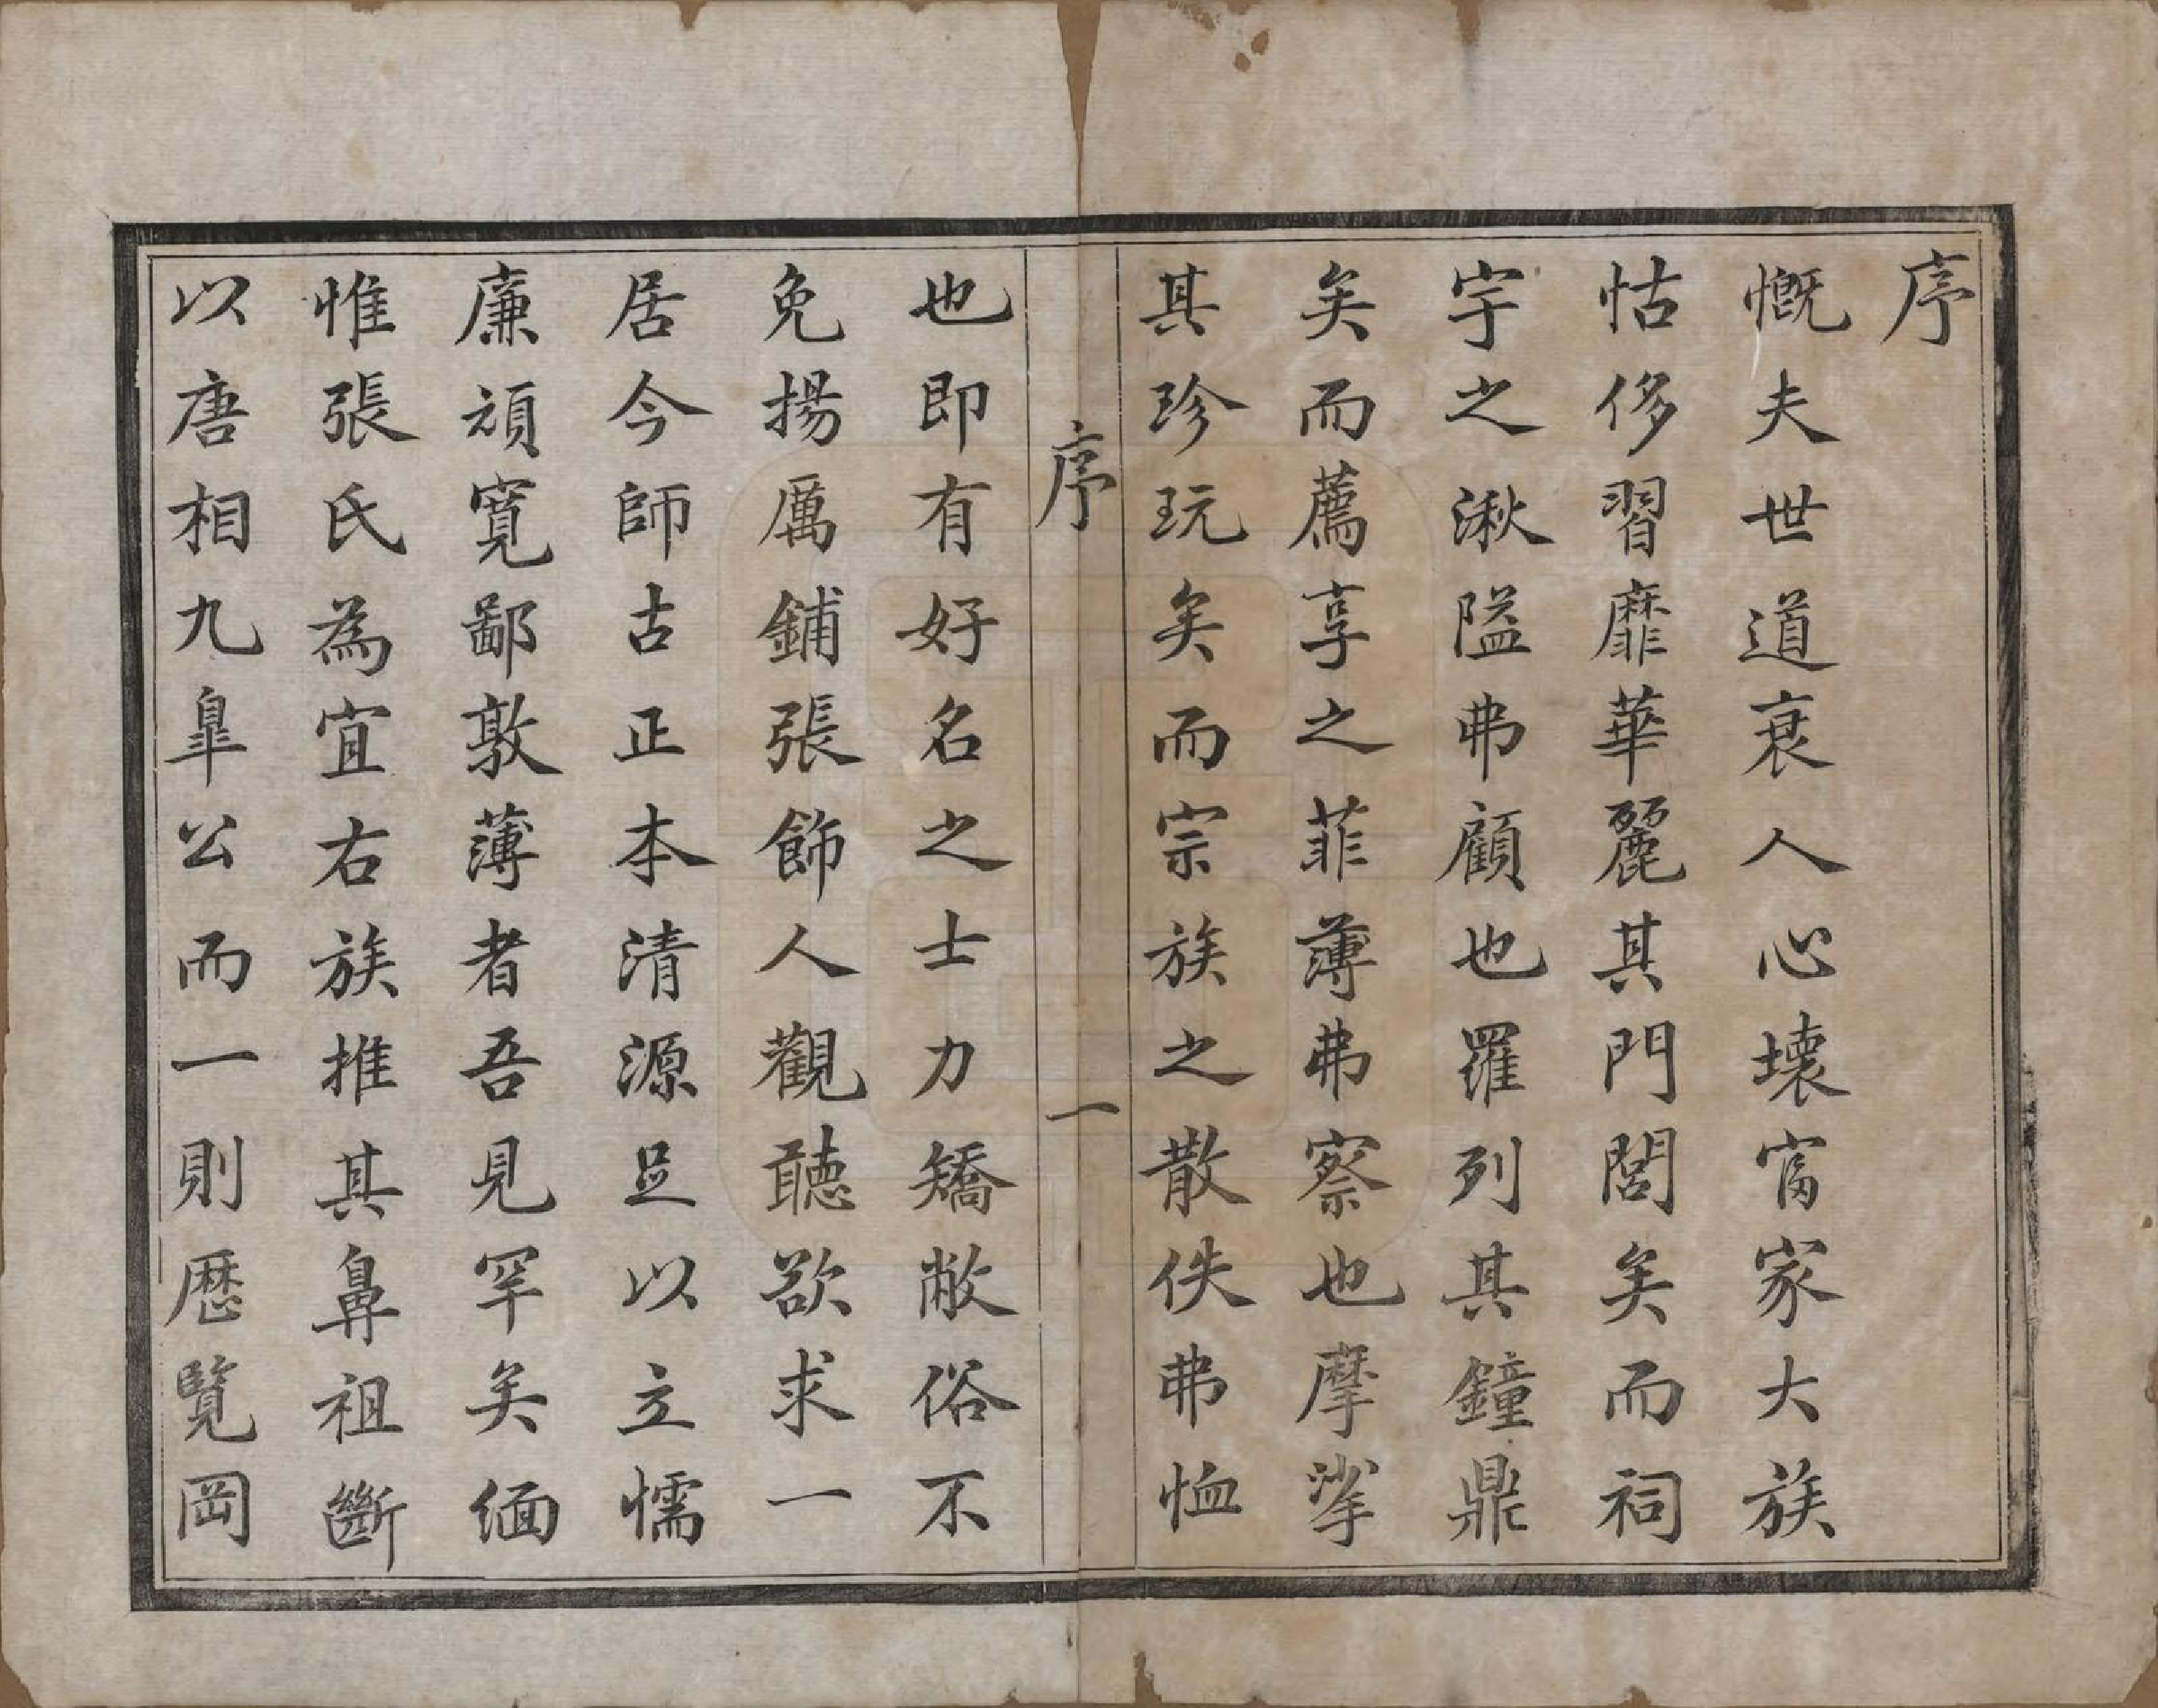 序
慨夫世道衰人心壞富家大族
怙侈習靡華麗其門閭矣而祠
宇之湫隘弗顧也羅列其鐘鼎
矣而薦享之菲薄弗察也摩挲
其珍玩矣而宗族之散佚弗恤
序 一
也即有好名之士力矯敝俗不
免揚厲鋪張飾人觀聽欲求一
居今師古正本清源足以立懦
廉頑寬鄙敦薄者吾見罕矣緬
惟張氏為宜右族推其鼻祖斷
以唐相九皐公而一則歷覽岡